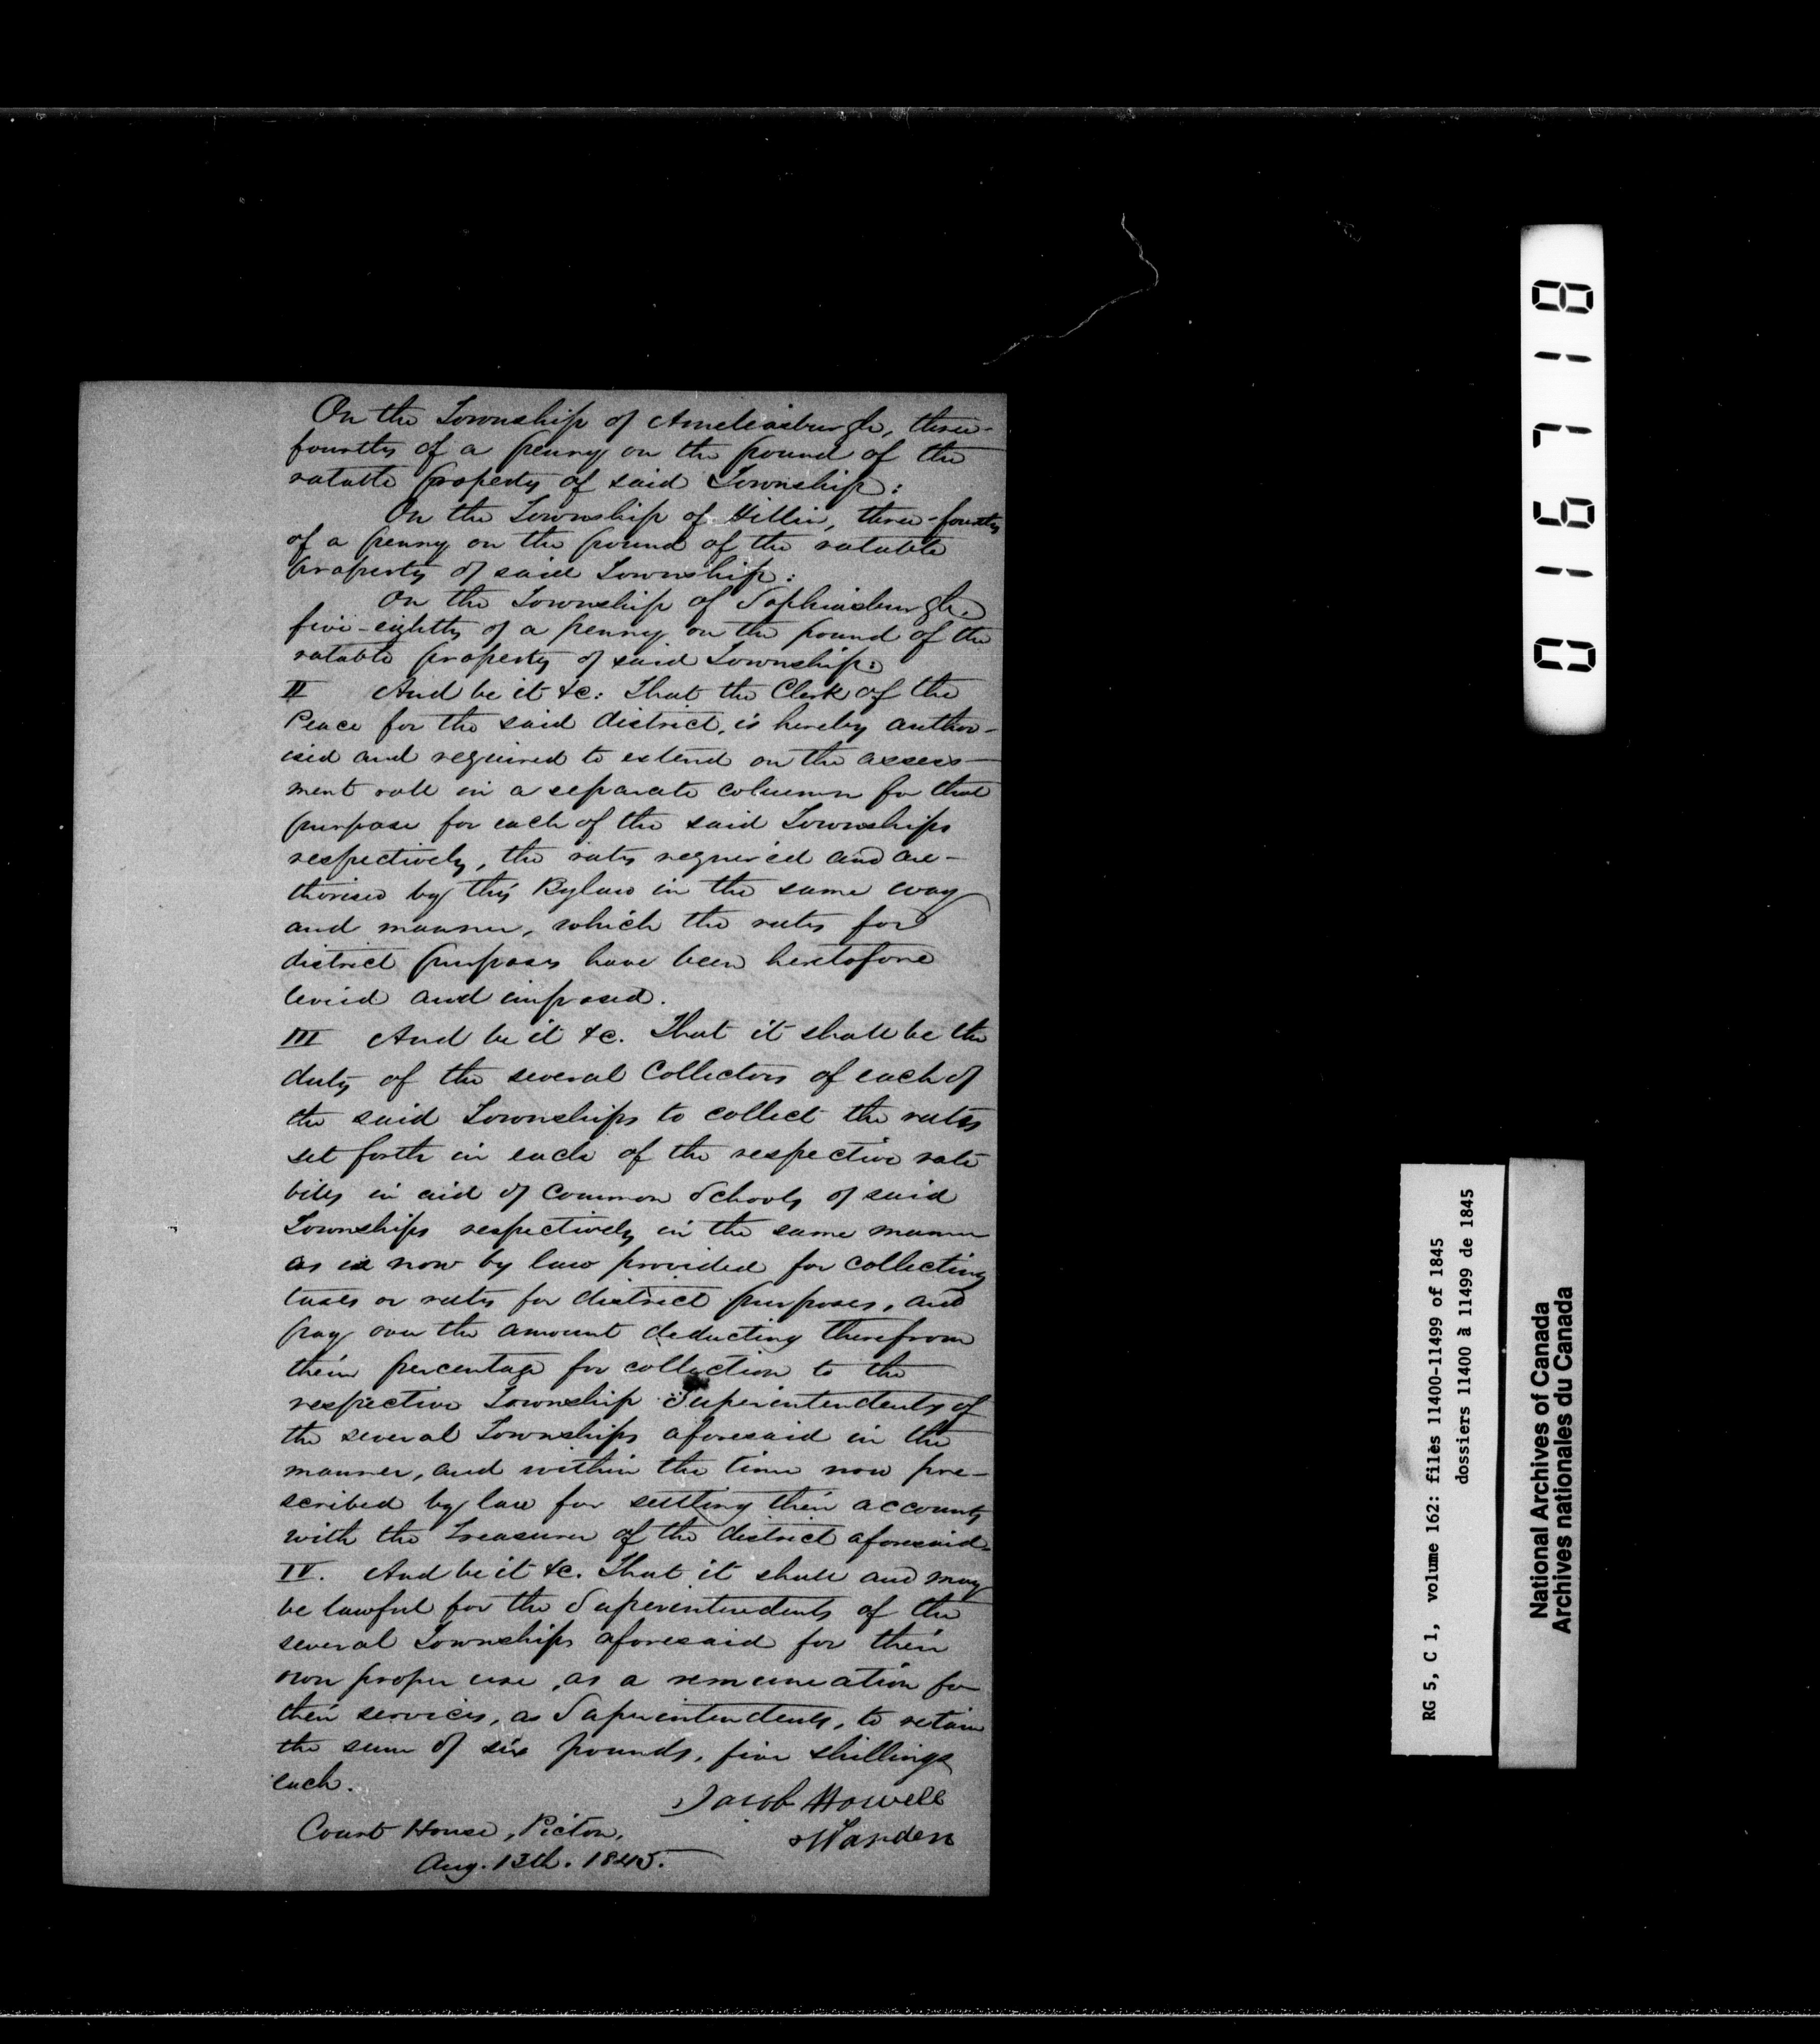 On the Township of Ameliasburgh, three-
fourths of a penny on the pound of the
ratable property of said Township:
On the Township of Hillier, three-fourths
of a penny on the pound of the ratable
property of said Township:
On the Township of Sophiasburgh,
five-eighths of a penny on the pound of the
ratable property of said Township:
II And be it &c: That the Clerk of the
Peace for the said district, is hereby author-
ised and required to extend on the assess-
ment roll in a separate column for that
purpose for each of the said Townships
respectively, the rates required and au-
thorised by this Bylaw in the same way
and manner, which the rates for
district purposes have been heretofore
levied and imposed.
III And be it &c. That it shall be the
duty of the several Collectors of each of
the said Townships to collect the rates
set forth in each of the respective rate
bills in aid of Common Schools of said
Townships respectively in the same manner
as is now by law provided for collecting
taxes or rates for district purposes, and
pay over the amount deducting therefrom
their percentage for collection to the
respective Township Superintendents of
the several Townships aforesaid in the
manner, and within the time now pre-
scribed by law for settling their accounts
with the Treasurer of the district aforesaid.
IV. And be it &c. That it shall and may
be lawful for the Superintendents of the
several Townships aforesaid for their
own proper use, as a remuneration for
their services, as Superintendents, to retain
the sum of six pounds, five shillings
each.
Jacob Howell
Warden
Court House, Picton,
Aug. 13th. 1845.
016718
RG 5, C 1, volume 162: files 11400-11499 of 1845
dossiers 11400 à 11499 de 1845
National Archives of Canada
Archives nationales du Canada